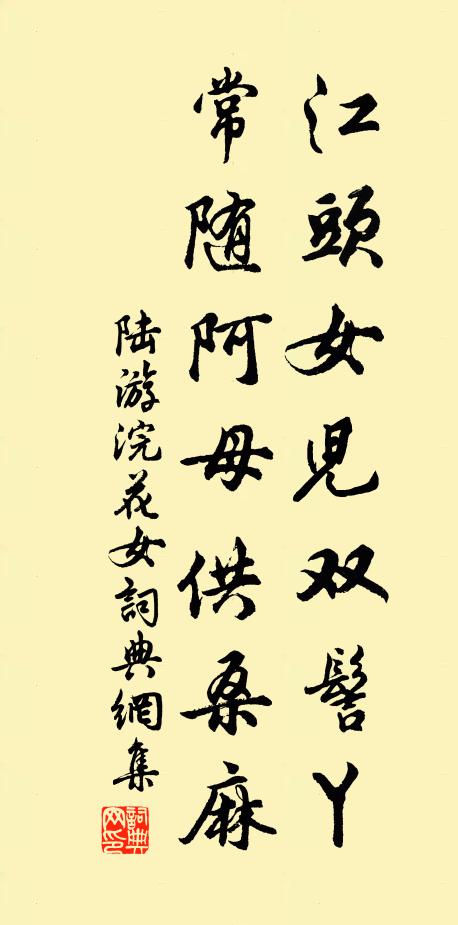 江頭女児双髻丫
常随阿母供桑麻
陆游浣花女詞典網集
詞典网印